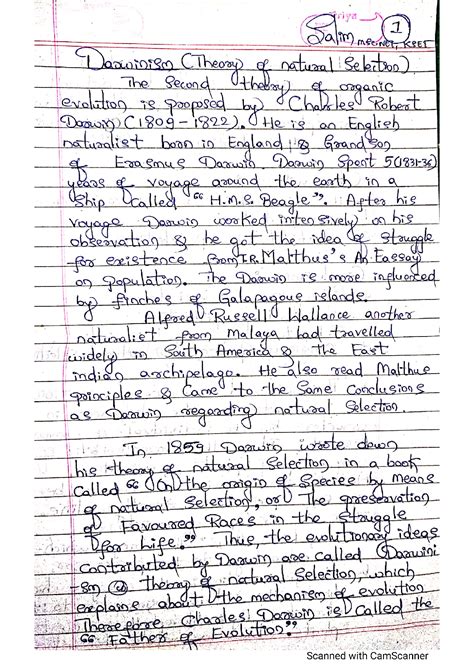 Priya
Salim, MSc.NET, KSET
1
Darwinism (Theory of natural Selection)
The Second theory of organic
evolution is proposed by Charles Robert
Darwin (1809-1822). He is an English
naturalist born in England & Grandson
of Erasmus Darwin. Darwin Spent 5(1831-36)
years of voyage around the earth in a
Ship Called "H.M.S. Beagle". After his
voyage Darwin worked intensively on his
observation & he got the idea of Struggle
for existence from T.R. Malthus's An Eassay
on Population. The Darwin is more influenced
by finches of Galapagous islands.
Alfred Russell Wallance another
naturalist from Malaya had travelled
widely in South America & the East
indian archipelago. He also read Malthus
principles & Came to the Same Conclusions
as Darwin regarding natural Selection.
In 1859 Darwin wrote down
his theory of natural Selection in a book
Called "On the origin of Species by means
of natural Selection, or The preservation
of Favoured Races in the Struggle
for Life." Thus, the evolutionary ideas
Contributed by Darwin are called Darwini
-sm or theory of natural Selection, which
explains about the mechanism of evolution
Therefore Charles Darwin is Called the
"Father of Evolution."
Scanned with CamScanner